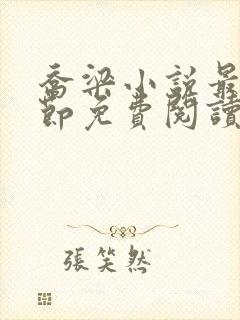 喬梁小說最
節免費閱讀
張笑然